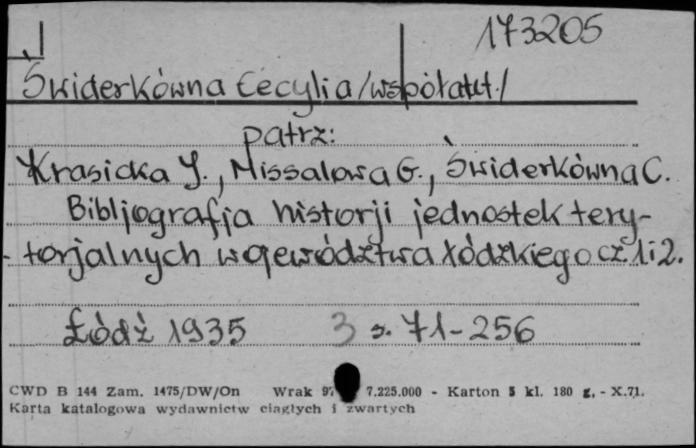 173205
Świderkówna Cecylia /współaut./
patrz:
Krasicka J., Missalowa G., Świderkówna C.
Bibljografja historji jednostek tery-
torjalnych województwa łódzkiego cz 1 i 2.
Łódź 1935 3 s. 71-256
CWD B 144 Zam. 1475/DW/On Wrak 7.225.000 - Karton 5 kl. 180 g. - X.71.
Karta katalogowa wydawnictw ciągłych i zwartych